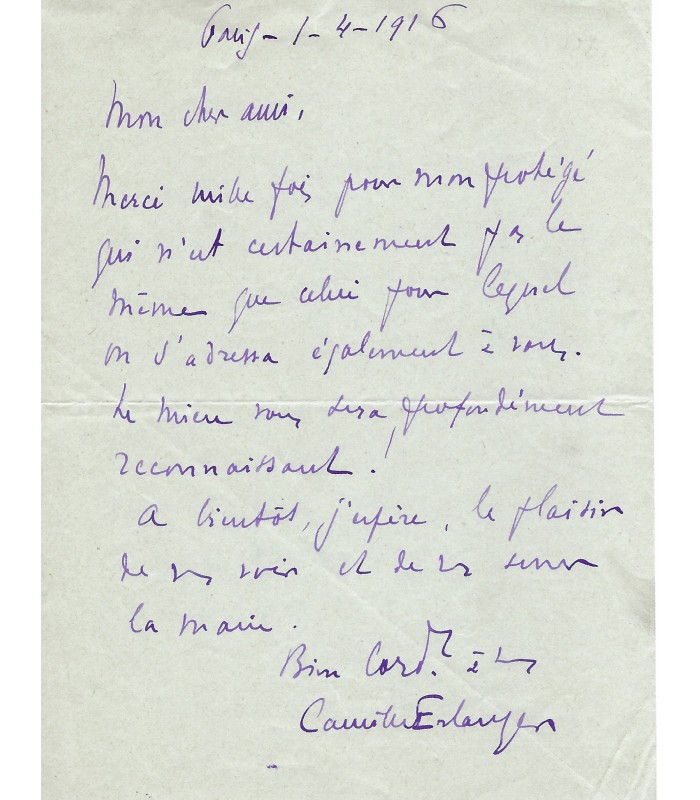 Paris - 1-4-1916
Mon cher ami,
Merci mille fois pour mon protégé
qui n'est certainement pas le
même que celui pour lequel
on s'adressa également à vous.
Le mien vous sera profondément
reconnaissant !
A bientôt, j'espère, le plaisir
de vous voir et de vous serrer
la main.
Bien Cord. à vous
Camille Erlanger